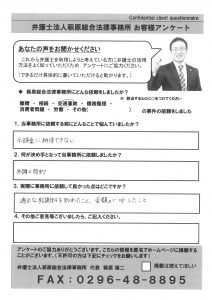 Confidential client questionnaire
弁護士法人萩原総合法律事務所 お客様アンケート
あなたの声をお聞かせください
これから弁護士を利用しようと考えている方に弁護士の活用
方法をよく知っていただくため、アンケートにご協力ください。
(できるだけ具体的に書いていただけると助かります。)
◆ 萩原総合法律事務所にどんな依頼をしましたか?
※ 該当するものに○をつけてください
離婚 ・ 相続 ・ 交通事故 ・ 債務整理 ・
消費者問題 ・ 労働 ・ その他( )の事件を依頼をしました
1. 当事務所に依頼する前にどんなことで悩んでいましたか?
示談金に納得できない
2. 何が決め手となって当事務所に依頼しましたか?
弁護士特約
3. 実際に事務所に依頼して良かった点はどこですか?
適正な慰謝料を知れたこと、金額が 中したこと
4. その他ご意見等ございましたら、ご記入ください。
アンケートのご協力ありがとうございます。こちらの情報を匿名でホームページに掲載する
ことがございます。(不許可の方は下記にチェックをお願いします)
弁護士法人萩原総合法律事務所 代表 萩原 慎二
掲載は控えてほしい
FAX:0296-48-8895